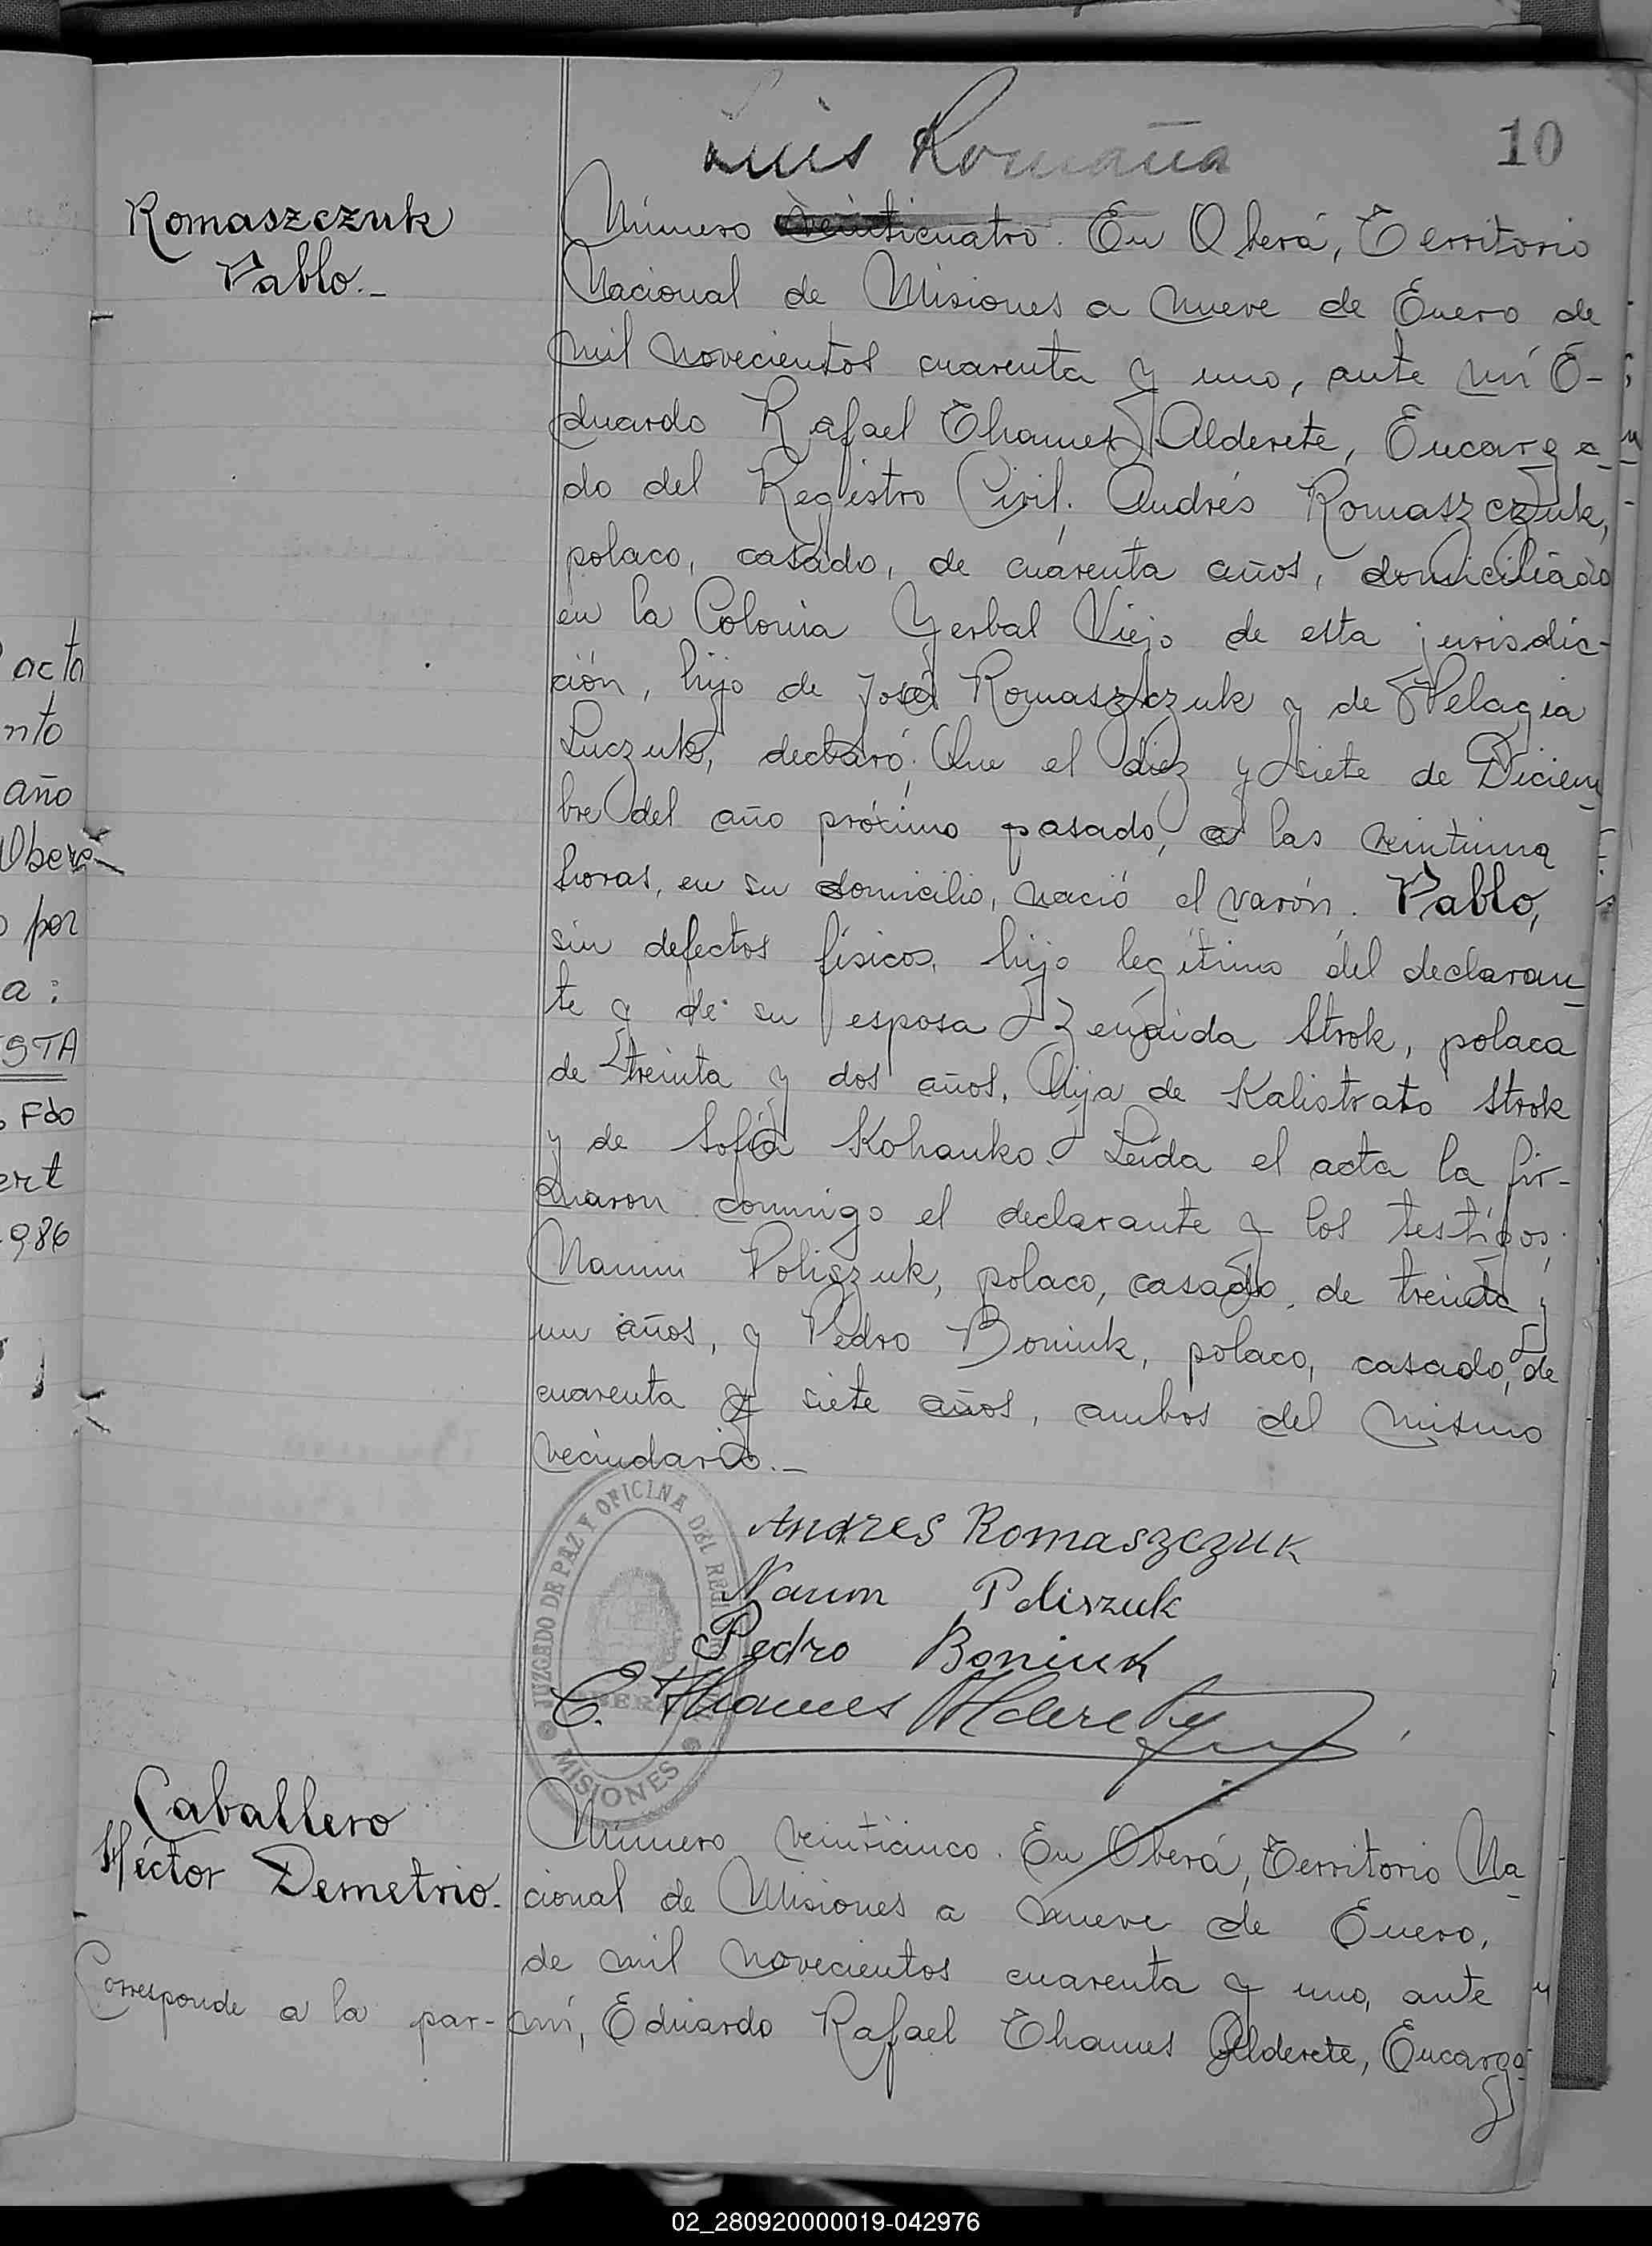 Luis Romaña
10
Romaszczuk
Pablo.-
Número veinticuatro. En Oberá, Territorio
Nacional de Misiones a nueve de Enero de
mil novecientos cuarenta y uno, ante mí E-
duardo Rafael Thames Alderete, Encarga-
do del Registro Civil: Andrés Romaszczuk,
polaco, casado, de cuarenta años, domiciliado
en la Colonia Yerbal Viejo de esta jurisdic-
ción, hijo de José Romaszczuk y de Pelagia
Luczuk, declaró: Que el diez y siete de Diciem-
bre del año próximo pasado, a las veintiuna
horas, en su domicilio, nació el varón. Pablo,
sin defectos físicos, hijo legítimo del declaran-
te y de su esposa Zenaida Strok, polaca
de treinta y dos años, hija de Kalistrato Strok
y de Sofía Kohanko. Leída el acta la fir-
maron conmigo el declarante y los testigos:
Naum Poliszuk, polaco, casado, de treinta y
un años, y Pedro Boniuk, polaco, casado, de
cuarenta y siete años, ambos del mismo
vecindario.-
Andres Romaszczuk
Naum Poliszuk
Pedro Boniuk
E. Thames Alderete
JUZGADO DE PAZ Y OFICINA DEL REGI
MISIONES
Caballero
Héctor Demetrio.-
Número veinticinco. En Oberá, Territorio Na-
cional de Misiones a nueve de Enero,
de mil novecientos cuarenta y uno, ante
mí, Eduardo Rafael Thames Alderete, Encarga-
Corresponde a la par-
acta
nto
año
Oberá
por
a:
STA
Fdo
ert
986
02_280920000019-042976